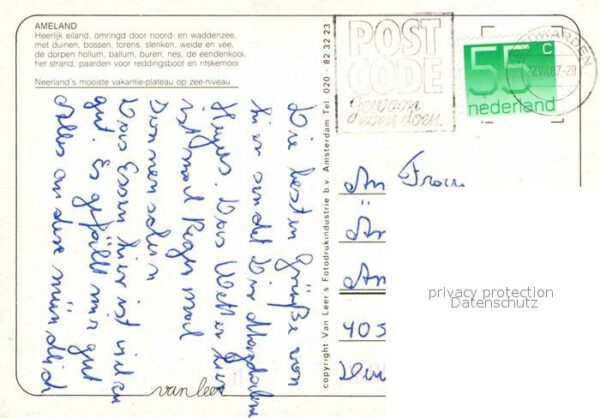 AMELAND
Heerlijk eiland, omringd door noord- en waddenzee,
met duinen, bossen, torens, slenken, weide en vee,
de dorpen hollum, ballum, buren, nes, de eendenkooi,
het strand, paarden voor reddingsboot en ritskemooi
Neerland's mooiste vakantie-plateau op zee-niveau
POST
CODE
Gewoon
even doen.
WARDEN
VII.87-20
55 c
nederland
copyright Van Leer's Fotodrukindustrie b.v. Amsterdam Tel. 020 - 82 32 23
Die besten Grüße von
hier sendet Dir
Das Wetter hier
ist mal Regen mal
Sonnenschein
Das Essen hier ist
gut. Es gefällt mir gut
Alles andere mündlich
An Frau
405
privacy protection
Datenschutz
van leer